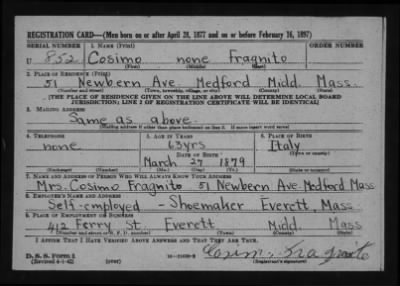 REGISTRATION CARD—(Men born on or after April 28, 1877 and on or before February 16, 1897)
SERIAL NUMBER 1. NAME (Print) ORDER NUMBER
U 852 Cosimo none Fragnito
(First) (Middle) (Last)
2. PLACE OF RESIDENCE (Print)
51 Newbern Ave Medford Midd. Mass.
(Number and street) (Town, township, village, or city) (County) (State)
[THE PLACE OF RESIDENCE GIVEN ON THE LINE ABOVE WILL DETERMINE LOCAL BOARD
JURISDICTION; LINE 2 OF REGISTRATION CERTIFICATE WILL BE IDENTICAL]
3. MAILING ADDRESS
Same as above.
[Mailing address if other than place indicated on line 2. If same insert word same]
4. TELEPHONE 5. AGE IN YEARS 6. PLACE OF BIRTH
none 63yrs Italy
DATE OF BIRTH (Town or county)
March 27 1879
(Exchange) (Number) (Mo.) (Day) (Yr.) (State or country)
7. NAME AND ADDRESS OF PERSON WHO WILL ALWAYS KNOW YOUR ADDRESS
Mrs. Cosimo Fragnito 51 Newbern Ave Medford Mass
8. EMPLOYER'S NAME AND ADDRESS
Self-employed - Shoemaker Everett, Mass.
9. PLACE OF EMPLOYMENT OR BUSINESS
412 Ferry St. Everett Midd. Mass
(Number and street or R. F. D. number) (Town) (County) (State)
I AFFIRM THAT I HAVE VERIFIED ABOVE ANSWERS AND THAT THEY ARE TRUE.
D. S. S. Form 1
(Revised 4-1-42) (over) (Registrant's signature)